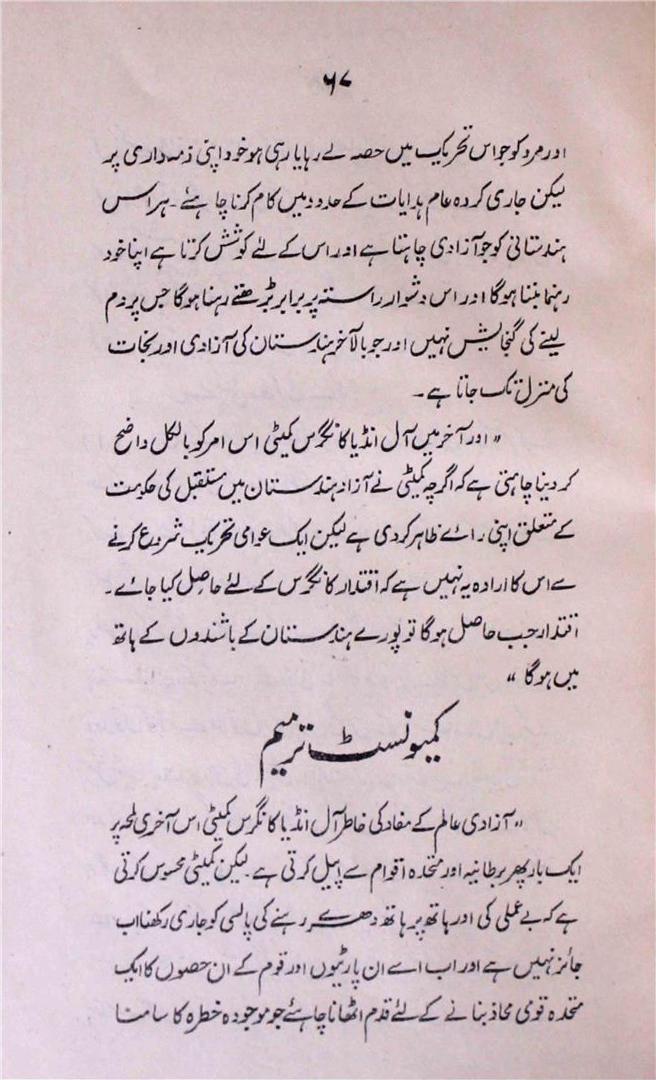 ۶۷
اور مرد کو جو اس تحریک میں حصہ لے رہا یا رہی ہو خود اپنی ذمہ داری پر
لیکن جاری کردہ عام ہدایات کے حدود میں کام کرنا چاہئے۔ ہر اس
ہندستانی کو جو آزادی چاہتا ہے اور اس کے لئے کوشش کرتا ہے اپنا خود
رہنما بننا ہوگا اور اس دشوار راستہ پر برابر بڑھتے رہنا ہوگا جس پر دم
لینے کی گنجایش نہیں اور جو بالآخر ہندستان کی آزادی اور نجات
کی منزل تک جاتا ہے۔
"اور آخر میں آل انڈیا کانگرس کمیٹی اس امر کو بالکل واضح
کر دینا چاہتی ہے کہ اگرچہ کمیٹی نے آزاد ہندستان میں مستقبل کی حکومت
کے متعلق اپنی رائے ظاہر کر دی ہے لیکن ایک عوامی تحریک شروع کرنے
سے اس کا ارادہ یہ نہیں ہے کہ اقتدار کانگرس کے لئے حاصل کیا جائے۔
اقتدار جب حاصل ہوگا تو پورے ہندستان کے باشندوں کے ہاتھ
میں ہوگا"
کمیونسٹ ترمیم
"آزادی عالم کے مفاد کی خاطر آل انڈیا کانگرس کمیٹی اس آخری لمحہ پر
ایک بار پھر برطانیہ اور متحدہ اقوام سے اپیل کرتی ہے۔ لیکن کمیٹی محسوس کرتی
ہے کہ بے عملی کی اور ہاتھ پر ہاتھ دھرے رہنے کی پالسی کو جاری رکھنا اب
جائز نہیں ہے اور اب اسے ان پارٹیوں اور قوم کے ان حصوں کا ایک
متحدہ قومی محاذ بنانے کے لئے قدم اٹھانا چاہئے جو موجودہ خطرہ کا سامنا